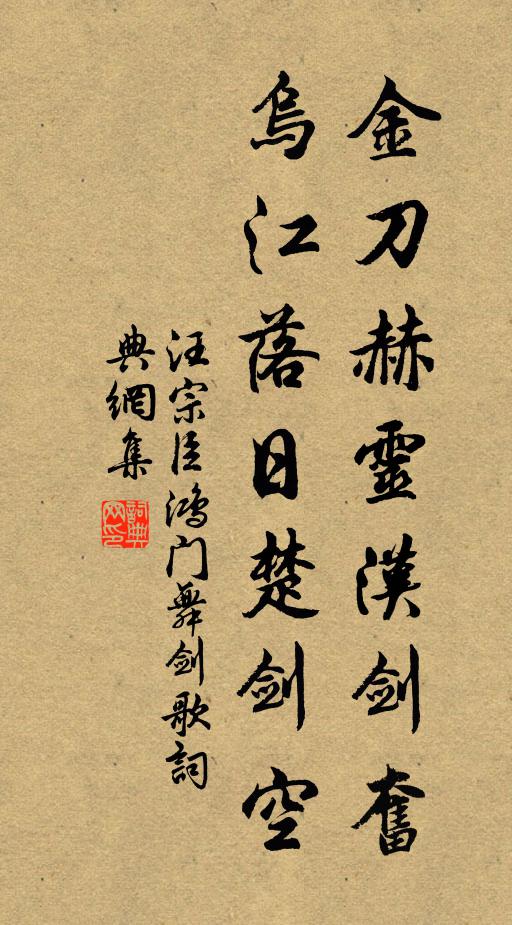 金刀赫靈漢剑奮
烏江落日楚剑空
汪宗臣鸿门舞剑歌詞
典網集
詞典
网印